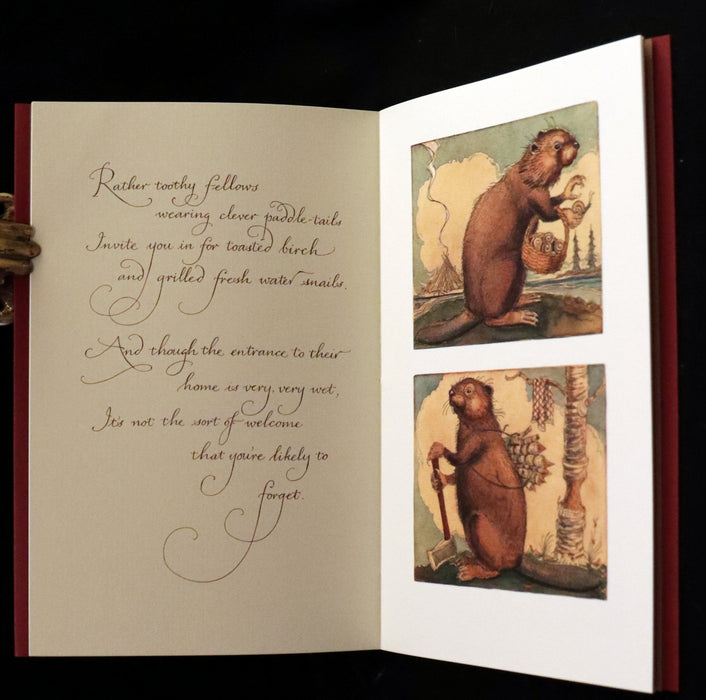 Rather toothy fellows
wearing clever paddle-tails
Invite you in for toasted birch
and grilled fresh water snails.
And though the entrance to their
home is very, very wet,
It's not the sort of welcome
that you're likely to
forget.